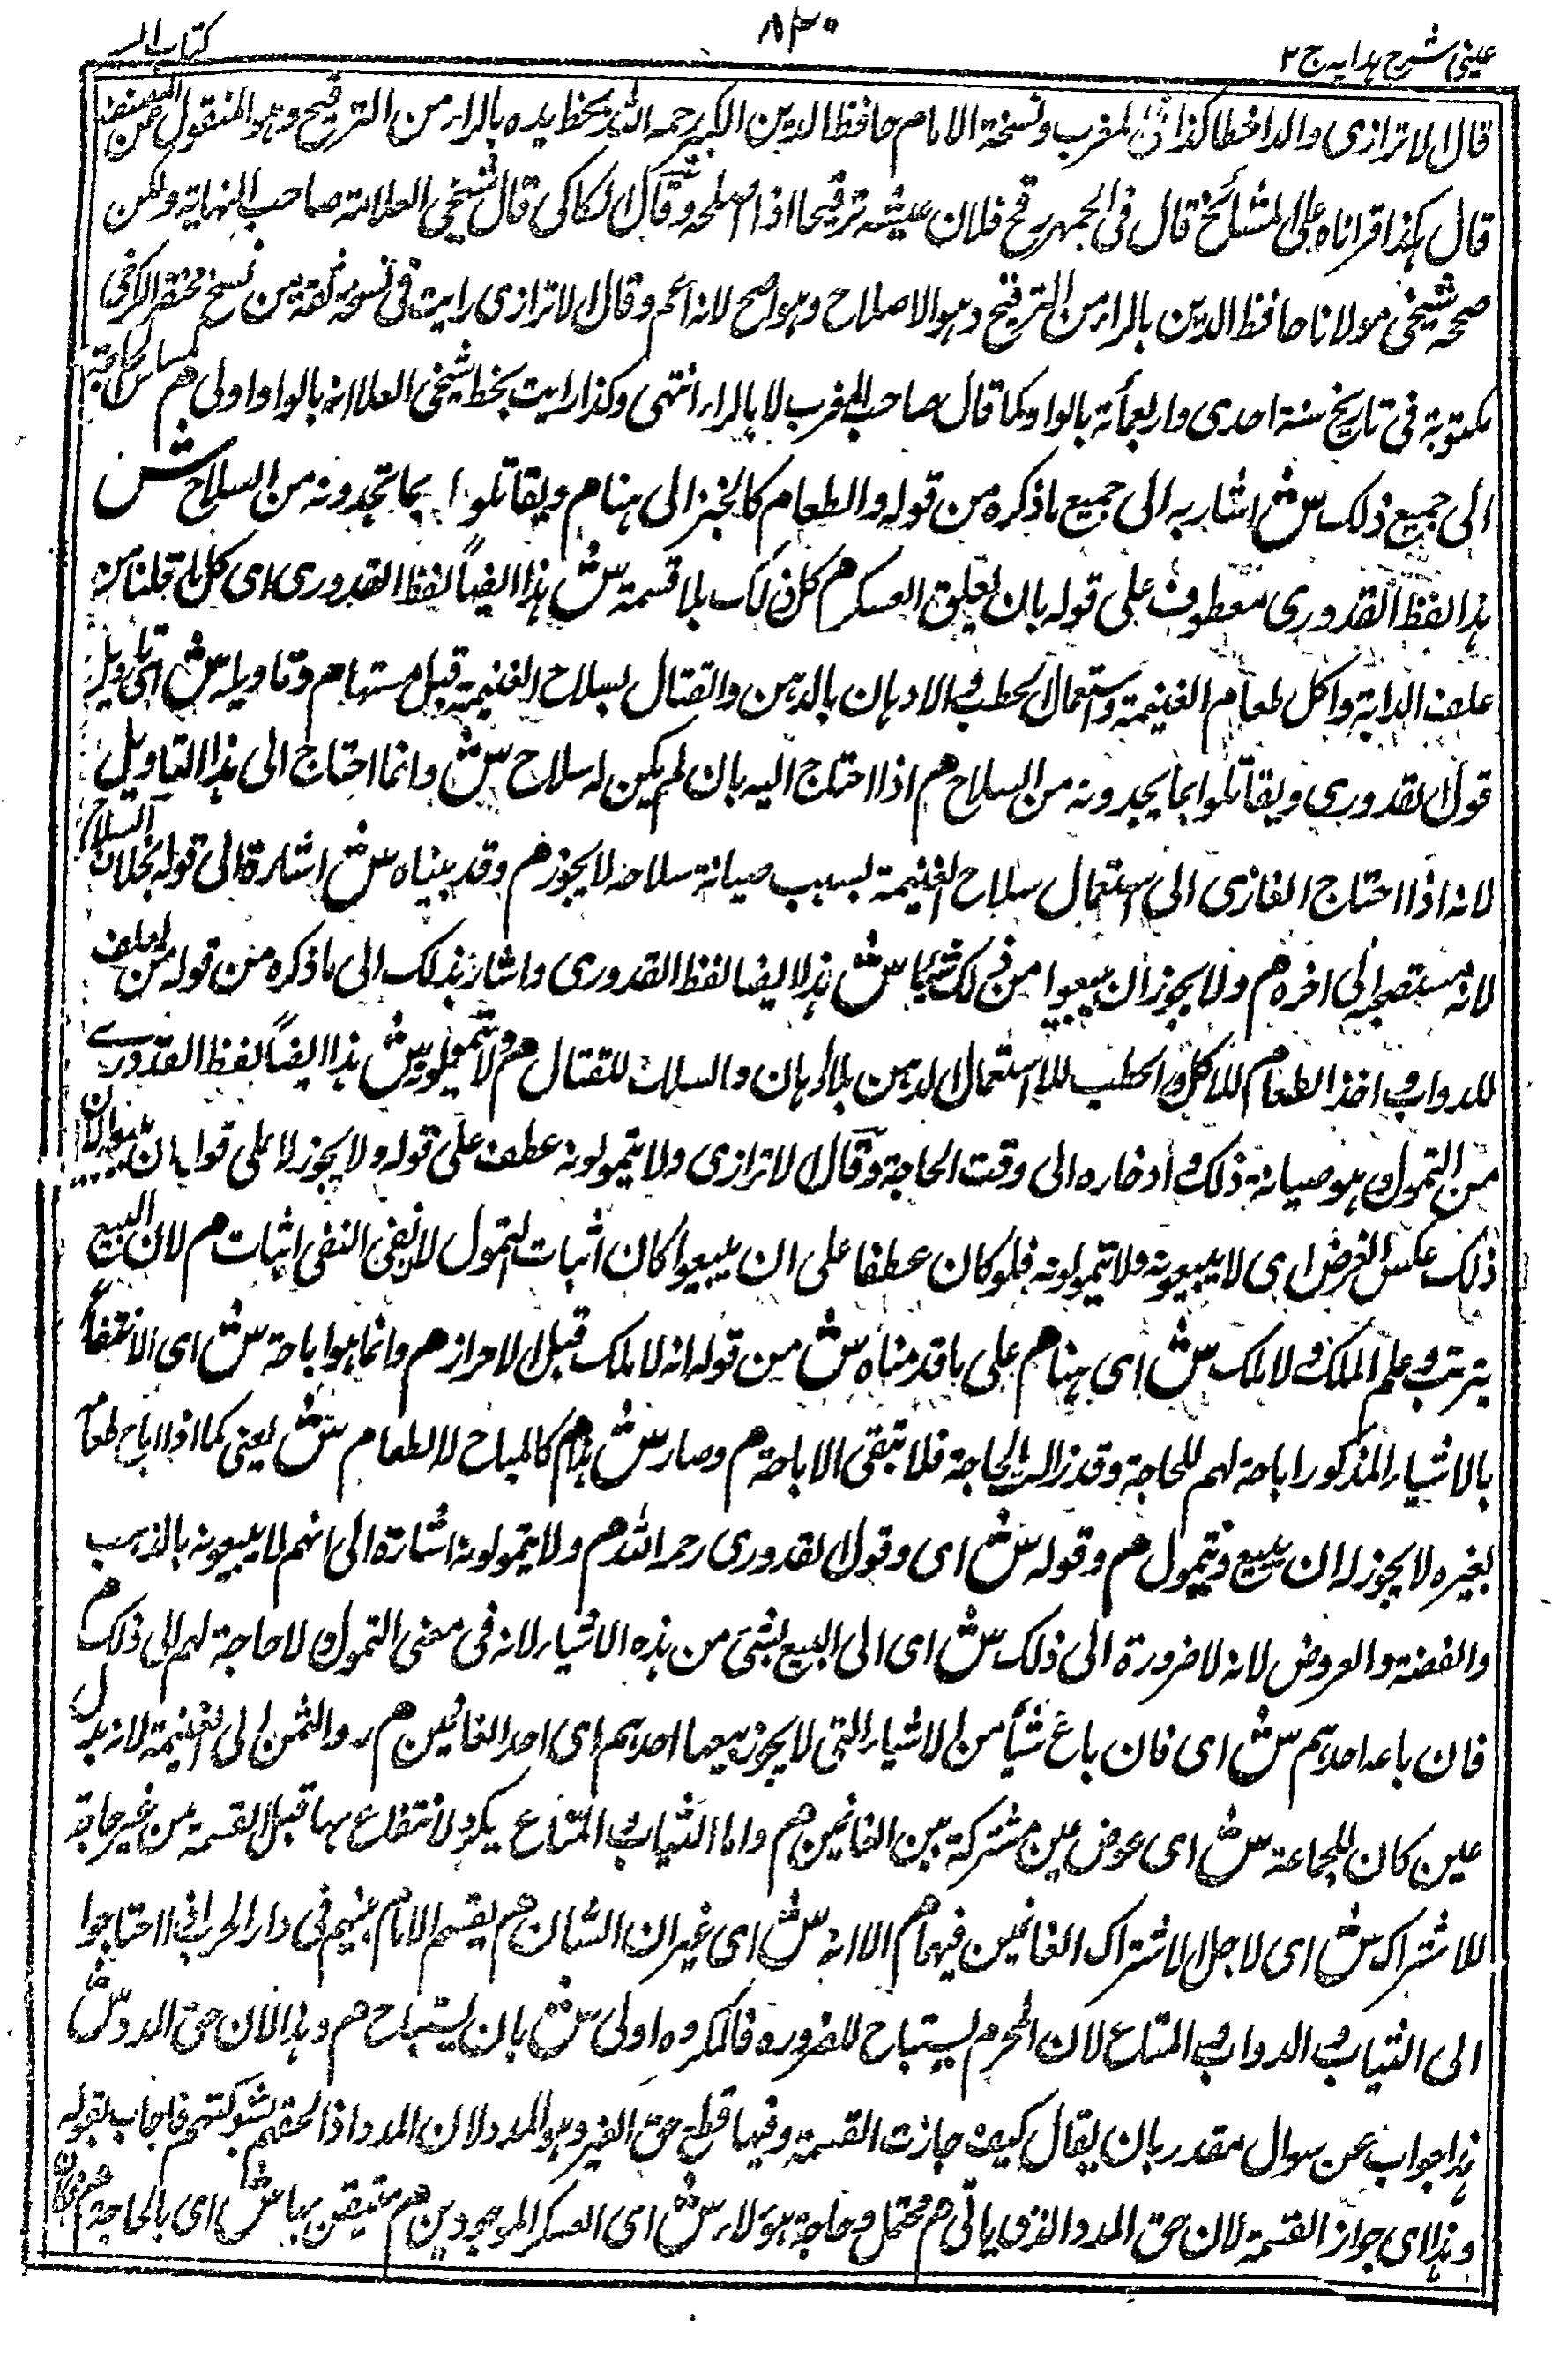 عينى شرح هدايه ج ٢
٨٣٠
كتاب السير
قال الاترازى والدا خطا كذا فى المغرب ونسخة الامام حافظ الدين الكبير رحمه الله بخط يده بالراء من الترقيح وهو المنقول عن المصنف
قال هكذا قراناه على المشائخ قال فى الجمهرة رقح فلان عيشه ترقيحا اذا اصلحه وقال الكاكى قال شيخى العلامة صاحب النهاية ولكن
صححه شيخى مولانا حافظ الدين بالراء من الترقيح وهو الاصلاح وهو اصح لانه اعم وقال الاترازى رايت فى نسخة ثقة من نسخ مختصر الكرخى
مكتوبة فى تاريخ سنة احدى واربعمائة بالواو كما قال صاحب المغرب لا بالراء انتهى وكذا رايت بخط شيخى العلا انه بالواو اولى م لمساس الحاجة
الى جميع ذلك ش اشار به الى جميع ما ذكره من قوله والطعام كالخبز الى هنا م ويقاتلوا بما يجدونه من السلاح ش
هذا لفظ القدورى معطوف على قوله بان يعلق العسكر م كل ذلك بلا قسمة ش هذا ايضاً لفظ القدورى اى كل ما قلنا من
علف الدابة واكل طعام الغنيمة واستعمال الحطب والادهان بالدهن والقتال بسلاح الغنيمة قبل قسمتها م وتاويله ش اى تاويل
قول القدورى ويقاتلوا بما يجدونه من السلاح م اذا احتاج اليه بان لم يكن له سلاح ش وانما احتاج الى هذا التاويل
لانه اذا احتاج الغازى الى استعمال سلاح الغنيمة بسبب صيانة سلاحه لا يجوز م وقد بيناه ش اشارة الى قوله بخلاف السلاح
لانه يستصحبه الى اخره م ولا يجوز ان يبيعوا من ذلك شيئا ش هذا ايضا لفظ القدورى واشار بذلك الى ما ذكره من قوله من العلف
للدواب واخذ الطعام للاكل والحطب للاستعمال الدهن بلا دهان والسلاح للقتال م ولا يتمولونه ش هذا ايضاً لفظ القدورے
من التمول وهو صيانة ذلك وادخاره الى وقت الحاجة وقال الاترازى ولا يتمولونه عطف على قوله ولا يجوز لا على قوله ان يبيعوا لان
ذلك عكس الغرض اى لا يبيعونه ولا يتمولونه فلو كان عطفا على ان يبيعوا كان اثبات التمول لان نفى النفى اثبات م لان البيع
يترتب على الملك ولا ملك ش اى هنا م على ما قدمناه ش من قوله انه لا ملك قبل الاحراز م وانما هو اباحة ش اى الانتفاع
بالاشياء المذكور اباحة لهم للحاجة وقد زالت الحاجة فلا تبقى الاباحة م وصار ش هذا م كالمباح له الطعام ش يعنى كما اذا اباح طعاما
لغيره لا يجوز له ان يبيع ويتمول م وقوله ش اى وقول القدورى رحمه الله م ولا يتمولونه اشارة الى انهم لا يبيعونه بالذهب
والفضة والعروض لانه لا ضرورة الى ذلك ش اى الى البيع بشئ من هذه الاشياء لانه فى معنى التمول ولا حاجة لهم الى ذلك م
فان باعه احدهم ش اى فان باع شيأ من الاشياء التى لا يجوز بيعها احدهم اى احد الغانمين م رد الثمن الى الغنيمة لانه بدل
عين كان للجماعة ش اى عوض عين مشتركة بين الغانمين م واما الثياب والمتاع يكره الانتفاع بها قبل القسمة من غير حاجة
للاشتراك ش اى لاجل الاشتراك الغانمين فيهما م الا انه ش اى غير ان الشان م يقسم الامام بينهم فى دار الحرب اذا احتاجوا
الى الثياب والدواب والمتاع لان المحرم يستباح للضرورة فالمكروه اولى ش بان يستباح م وهذا لان حق المدد ش
هذا جواب عن سوال مقدر بان يقال كيف جازت القسمة وفيها قطع حق الغير وهو المدد لان المدد اذا لحقهم شوركتهم فاجاب بقوله
وهذا اى جواز القسمة لان حق المدد الذى ياتى م محتمل وحاجة هولاء ش اى العسكر الموجودين م متيقن بها ش اى بالحاجة م فكان